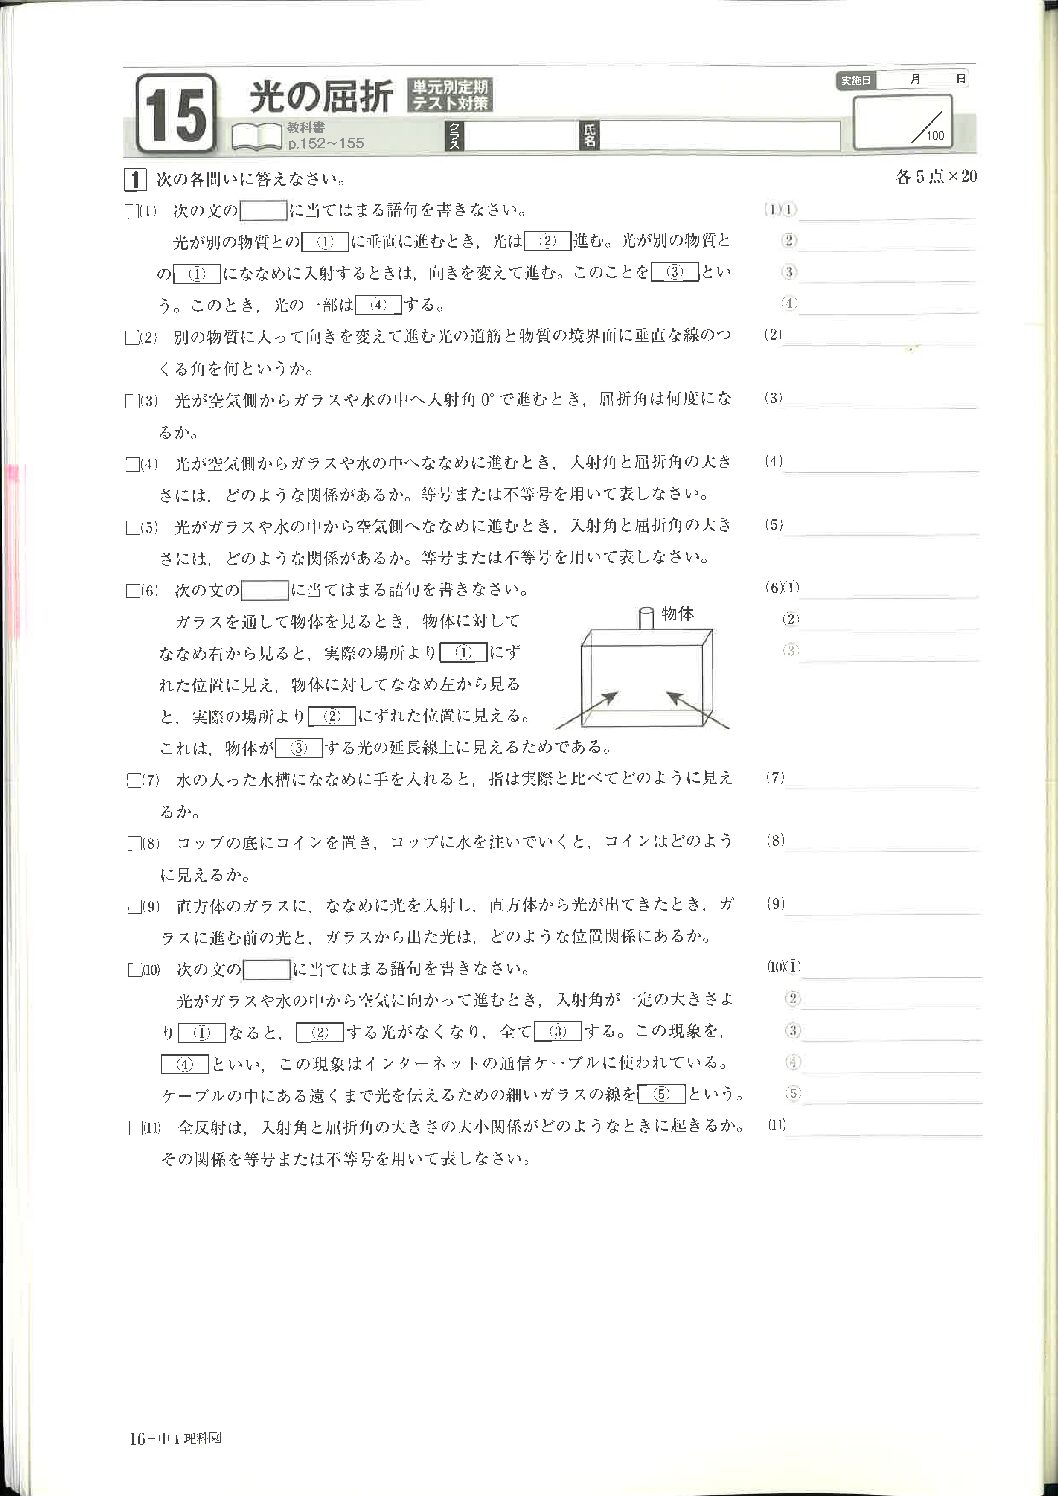 15
光の屈折
単元別定期
テスト対策
教科書
p.152〜155
クラス
氏名
実施日 月 日
/100
1 次の各問いに答えなさい。 各5点×20
□(1) 次の文の□に当てはまる語句を書きなさい。
光が別の物質との(①)に垂直に進むとき，光は(②)進む。光が別の物質と
の(①)にななめに入射するときは，向きを変えて進む。このことを(③)とい
う。このとき，光の一部は(④)する。
□(2) 別の物質に入って向きを変えて進む光の道筋と物質の境界面に垂直な線のつ
くる角を何というか。
□(3) 光が空気側からガラスや水の中へ入射角0°で進むとき，屈折角は何度にな
るか。
□(4) 光が空気側からガラスや水の中へななめに進むとき，入射角と屈折角の大き
さには，どのような関係があるか。等号または不等号を用いて表しなさい。
□(5) 光がガラスや水の中から空気側へななめに進むとき，入射角と屈折角の大き
さには，どのような関係があるか。等号または不等号を用いて表しなさい。
□(6) 次の文の□に当てはまる語句を書きなさい。
ガラスを通して物体を見るとき，物体に対して
ななめ右から見ると，実際の場所より(①)にず
れた位置に見え，物体に対してななめ左から見る
と，実際の場所より(②)にずれた位置に見える。
これは，物体が(③)する光の延長線上に見えるためである。
物体
□(7) 水の入った水槽にななめに手を入れると，指は実際と比べてどのように見え
るか。
□(8) コップの底にコインを置き，コップに水を注いでいくと，コインはどのよう
に見えるか。
□(9) 直方体のガラスに，ななめに光を入射し，直方体から光が出てきたとき，ガ
ラスに進む前の光と，ガラスから出た光は，どのような位置関係にあるか。
□(10) 次の文の□に当てはまる語句を書きなさい。
光がガラスや水の中から空気に向かって進むとき，入射角が一定の大きさよ
り(①)なると，(②)する光がなくなり，全て(③)する。この現象を，
(④)といい，この現象はインターネットの通信ケーブルに使われている。
ケーブルの中にある遠くまで光を伝えるための細いガラスの線を(⑤)という。
□(11) 全反射は，入射角と屈折角の大きさの大小関係がどのようなときに起きるか。
その関係を等号または不等号を用いて表しなさい。
(1)①
②
③
④
(2)
(3)
(4)
(5)
(6)①
②
③
(7)
(8)
(9)
(10)①
②
③
④
⑤
(11)
16－中1理科図